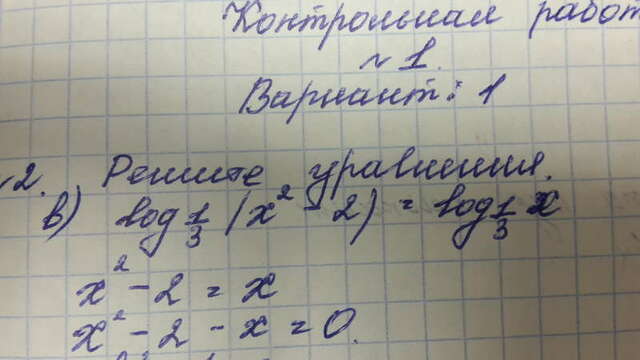 Контрольная работ
№1.
Вариант: 1
2. Решите уравнения.
в) log 1/3 (x² - 2) = log 1/3 x
x² - 2 = x
x² - 2 - x = 0.